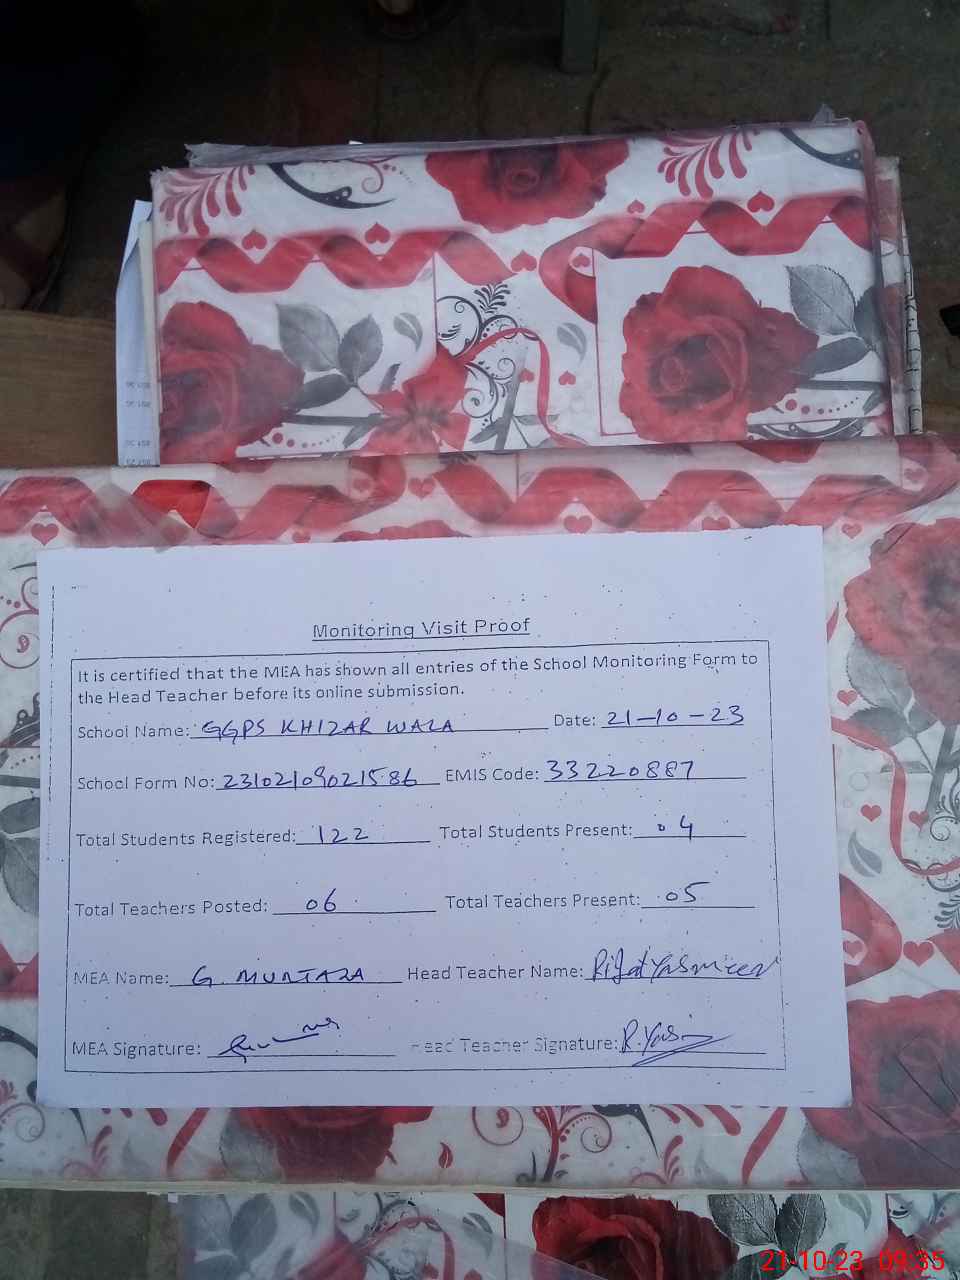 Monitoring Visit Proof
It is certified that the MEA has shown all entries of the School Monitoring Form to
the Head Teacher before its online submission.
School Name: GGPS KHIZAR WALA Date: 21-10-23
School Form No: 23102109021586 EMIS Code: 33220887
Total Students Registered: 122 Total Students Present: 04
Total Teachers Posted: 06 Total Teachers Present: 05
MEA Name: G. MURTAZA Head Teacher Name: Rifat Yasmeen
MEA Signature: Head Teacher Signature: R.Yas
21-10-23 09:35